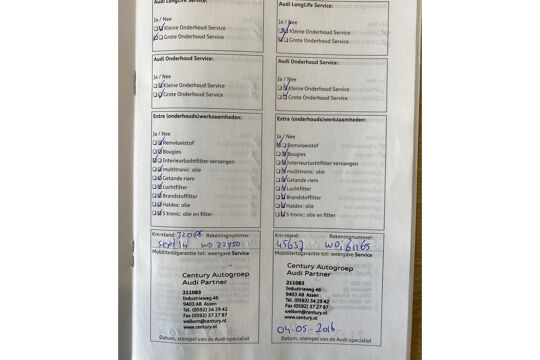 Audi LongLife Service:
Ja / Nee
Kleine Onderhoud Service
Grote Onderhoud Service
Audi Onderhoud Service:
Ja / Nee
Kleine Onderhoud Service
Grote Onderhoud Service
Extra (onderhouds)werkzaamheden:
Ja / Nee
Remvloeistof
Bougies
Interieurluchtfilter vervangen
multitronic: olie
Getande riem
Luchtfilter
Brandstoffilter
Haldex: olie
S tronic: olie en filter
Km-stand: Rekeningnummer:
sept 14 WO 22750
Mobiliteitsgarantie tot: weergave Service
Century Autogroep
Audi Partner
211083
Industrieweg 46
9403 AB Assen
Tel. (0592) 34 29 42
Fax (0592) 37 27 87
welkom@century.nl
www.century.nl
Datum, stempel van de Audi-specialist
Audi LongLife Service:
Ja / Nee
Kleine Onderhoud Service
Grote Onderhoud Service
Audi Onderhoud Service:
Ja / Nee
Kleine Onderhoud Service
Grote Onderhoud Service
Extra (onderhouds)werkzaamheden:
Ja / Nee
Remvloeistof
Bougies
Interieurluchtfilter vervangen
multitronic: olie
Getande riem
Luchtfilter
Brandstoffilter
Haldex: olie
S tronic: olie en filter
Km-stand: Rekeningnummer:
45637 WO, 61165
Mobiliteitsgarantie tot: weergave Service
Century Autogroep
Audi Partner
211083
Industrieweg 46
9403 AB Assen
Tel. (0592) 34 29 42
Fax (0592) 37 27 87
welkom@century.nl
www.century.nl
04-05-2016.
Datum, stempel van de Audi-specialist